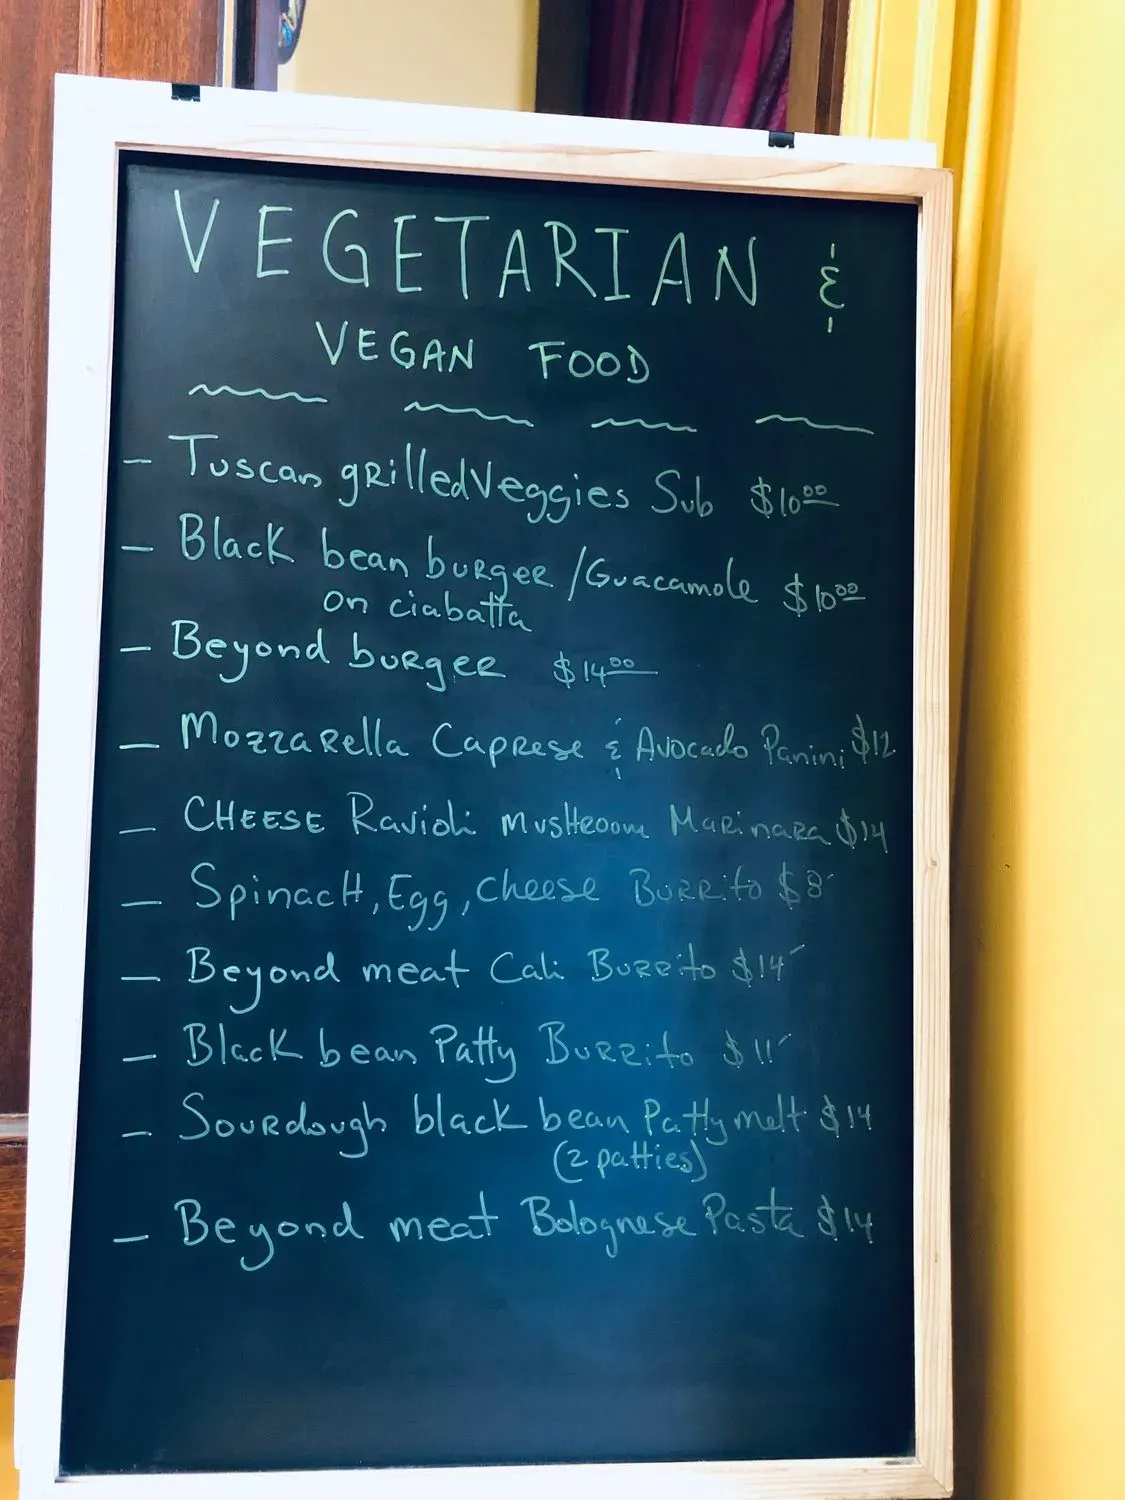 VEGETARIAN &
VEGAN FOOD
- Tuscan grilled Veggies Sub $10.00
- Black bean burger / Guacamole $10.00
on ciabatta
- Beyond burger $14.00
- Mozzarella Caprese & Avocado Panini $12
- CHEESE Ravioli mushroom Marinara $14
- Spinach, Egg, cheese Burrito $8
- Beyond meat Cali Burrito $14
- Black bean Patty Burrito $11
- Sourdough black bean Patty melt $14
(2 patties)
- Beyond meat Bolognese Pasta $14